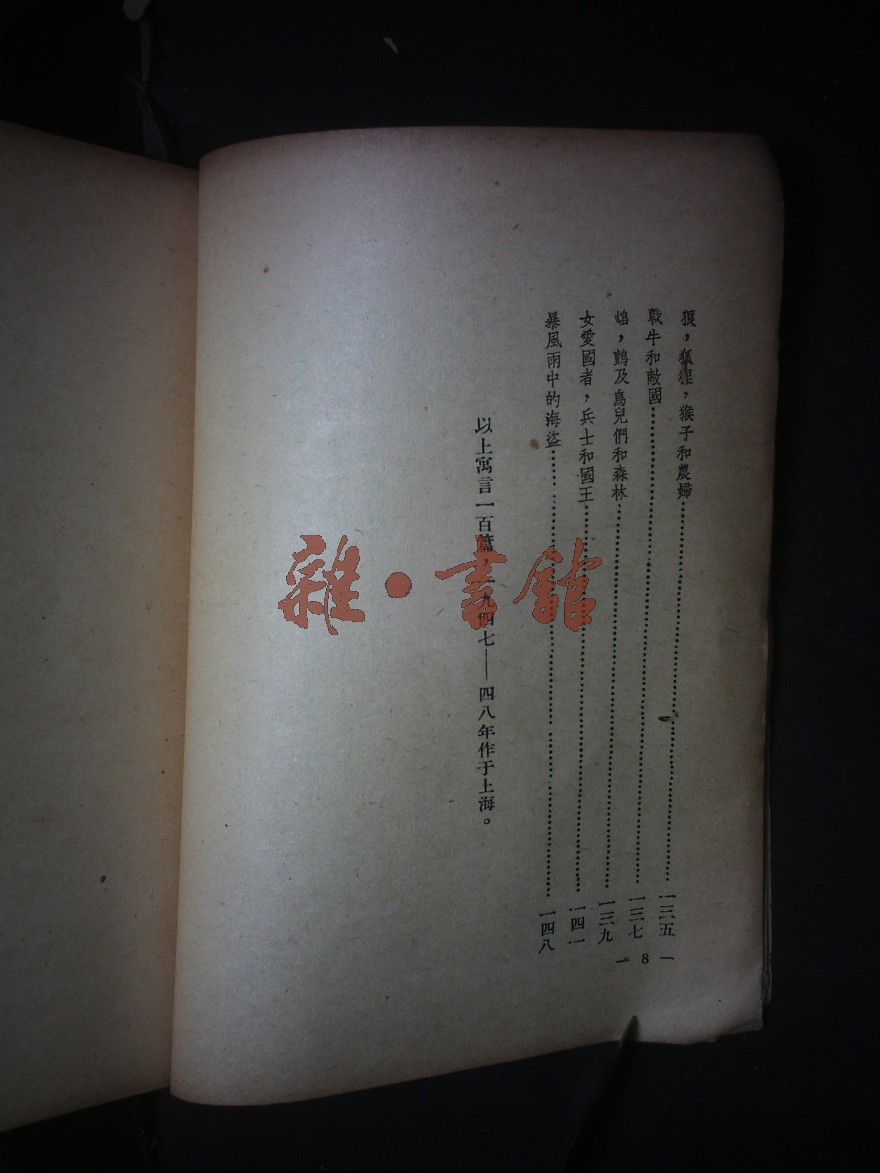 狼，狐狸，猴子和農婦……一三五
戰牛和敵國……一三七
，及鳥兒們和森林……一三九
女愛國者，兵士和國王……一四一
暴風雨中的海盜……一四八
以上寓言一百篇，一九四七——四八年作于上海。
— 8 —
雜·書館